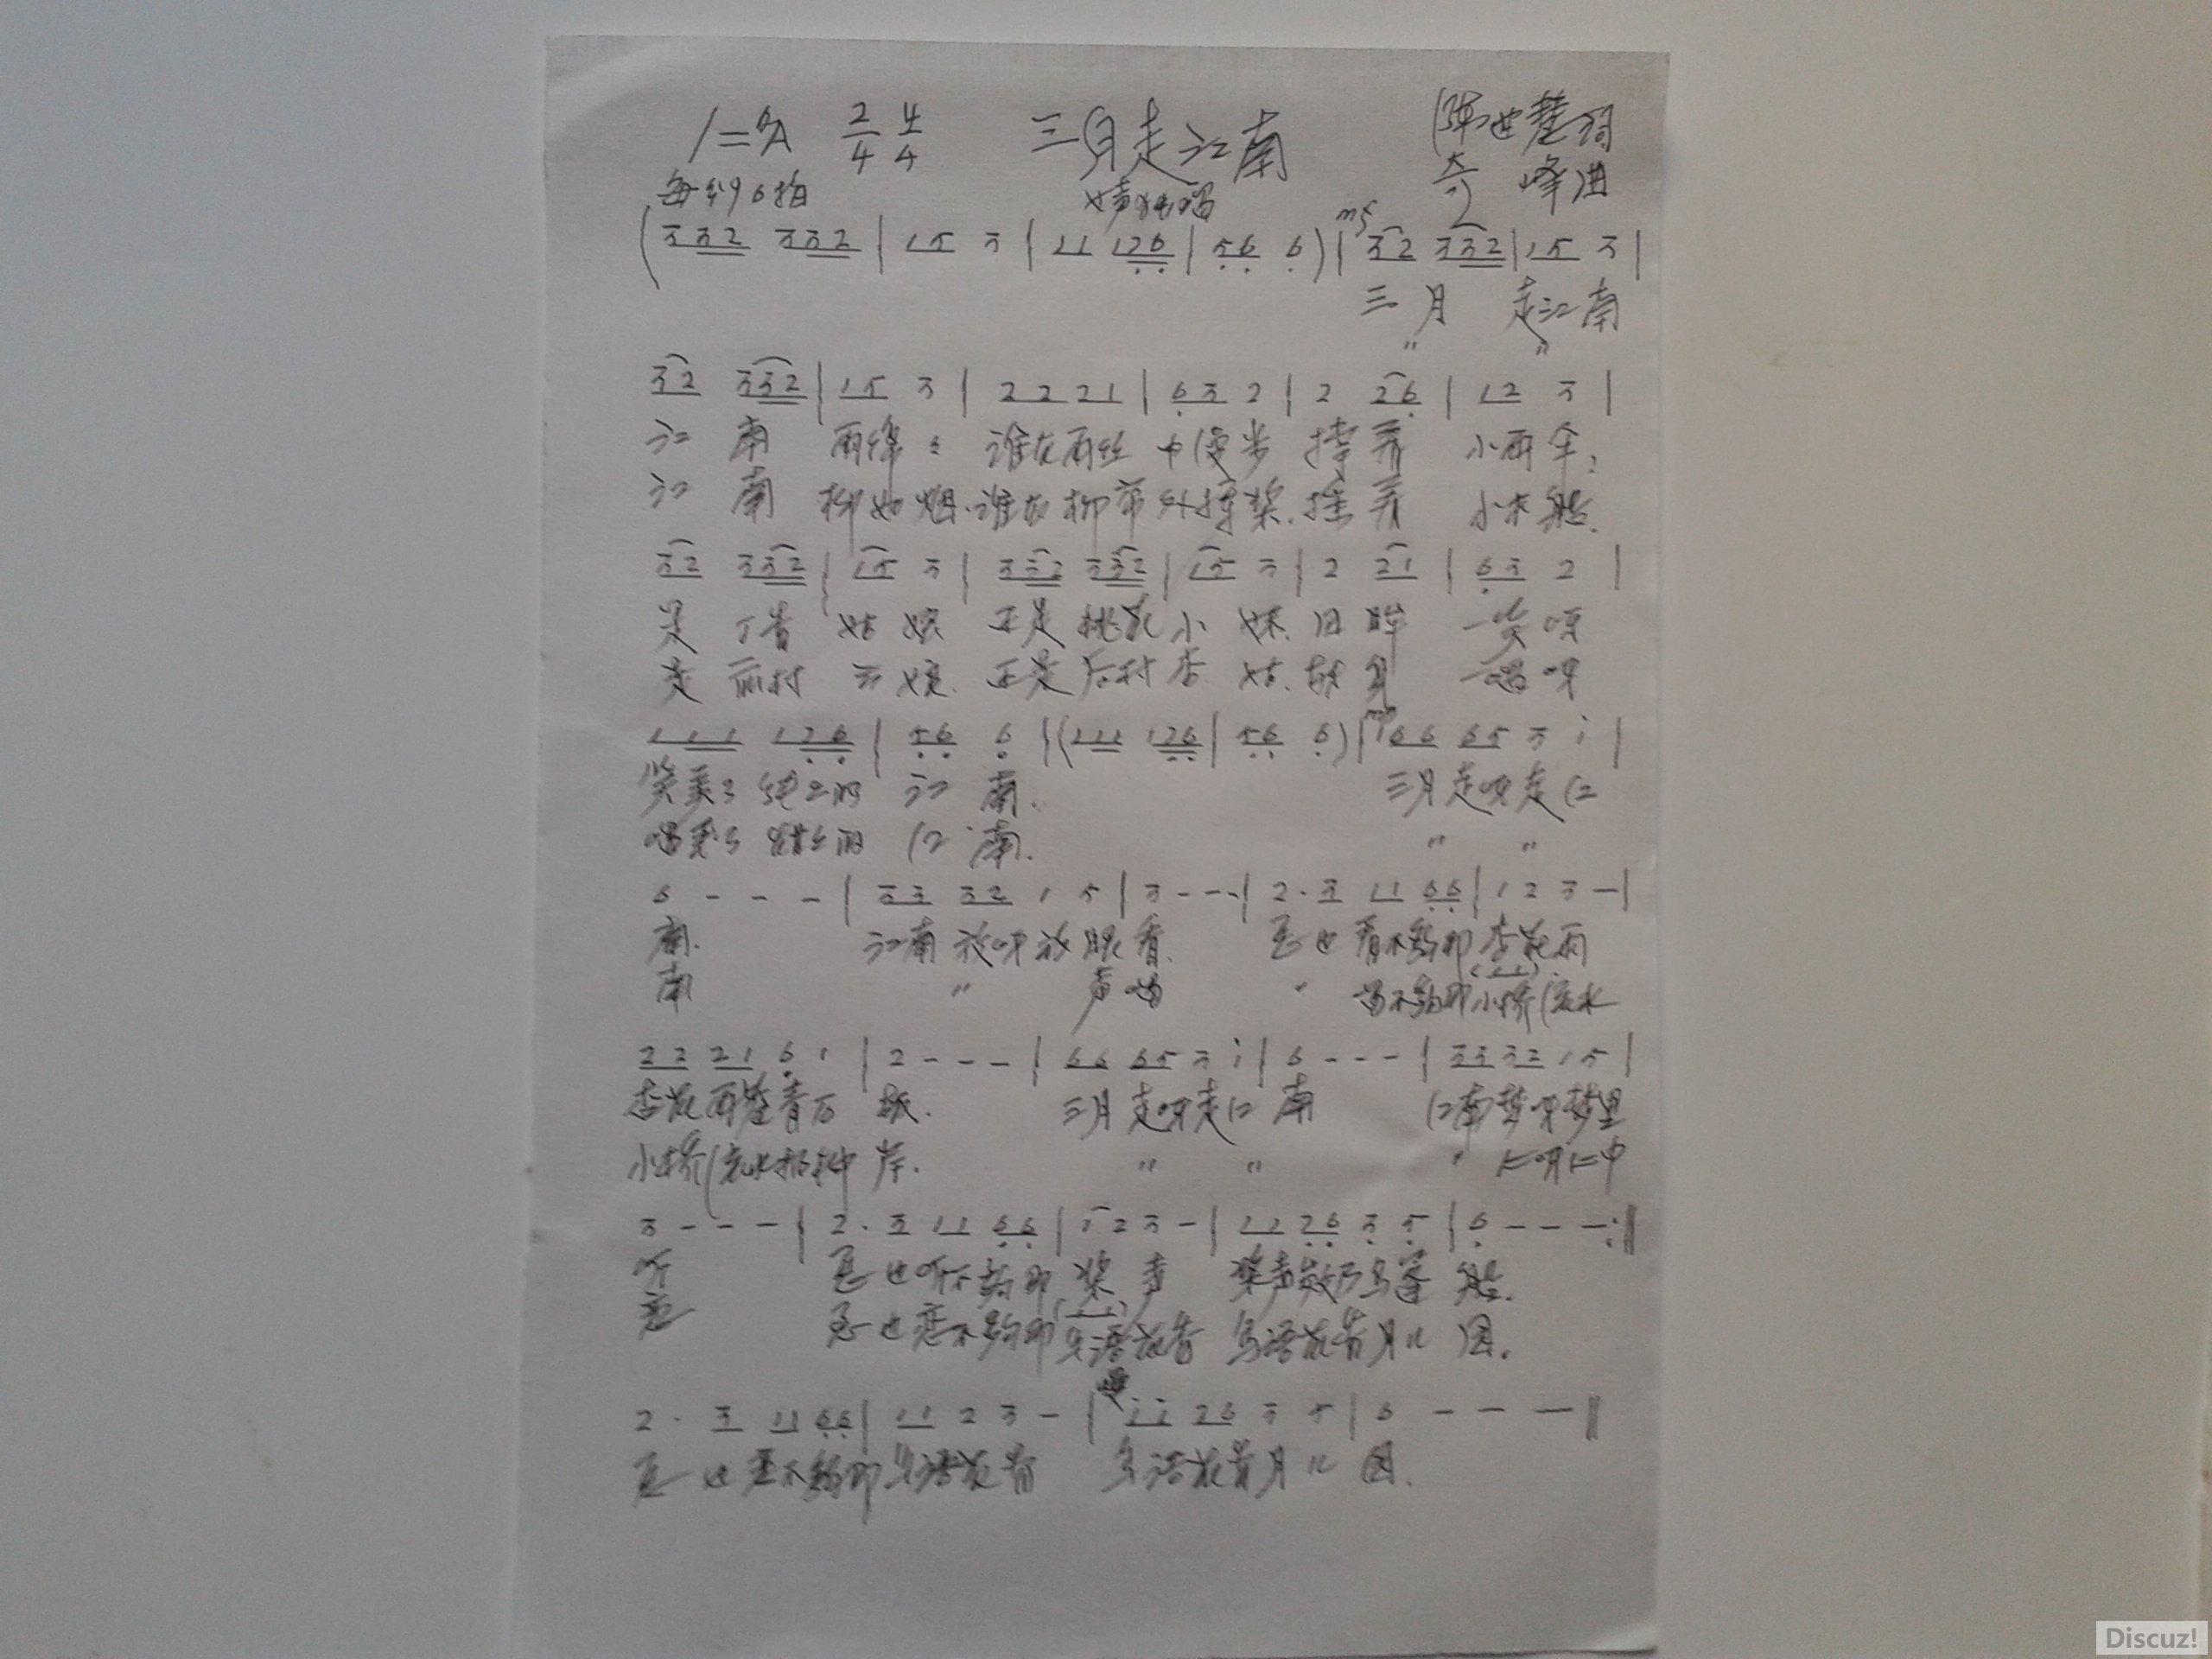 1=♭A 2/4 4/4 三月走江南
每分96拍 女声独唱 奇峰曲
(3 3 2 3 3 2 | 1 5 3 | 1 1 1 2 6 | 5 6 6) | mf 3 2 3 3 2 | 1 5 3 |
三月 走江南
〃 〃
3 2 3 3 2 | 1 5 3 | 2 2 2 1 | 6 3 2 | 2 2 6 | 1 2 3 |
江南 雨绵々 谁在雨丝中漫步 撑开 小雨伞,
江南 柳如烟.谁在柳帘外撑桨.摇开 小木船.
3 2 3 3 2 | 1 5 3 | 3 3 2 3 3 2 | 1 5 3 | 2 2 1 | 6 3 2 |
是 丁香 姑娘 还是桃花小妹.回眸 一笑呀
是 前村 云嫂.还是后村杏姑. 一唱呀
1 1 1 1 2 6 | 5 6 6 | (1 1 1 1 2 6 | 5 6 6) | mp 6 6 6 5 3 i |
笑美了 的 江南. 三月走呀走江
唱美了 的 江南. 〃 〃
6 - - - | 3 3 3 2 1 5 | 3 - - - | 2 · 3 1 1 6 6 | 1 2 3 - |
南. 江南放呀放眼看. 怎也看不够那杏花雨
南 〃 声唱 〃 唱不够那小桥流水
2 2 2 1 6 1 | 2 - - - | 6 6 6 5 3 i | 6 - - - | 3 3 3 2 1 5 |
杏花雨 青石板. 三月走呀走江南 江南梦呀梦里
小桥流水 岸. 〃 〃 〃
3 - - - | 2 · 3 1 1 6 6 | 1 2 3 - | 1 1 2 6 3 5 | 6 - - - :||
听 怎也听不够那桨声 桨声欸乃乌篷船.
恋 怎也恋不够那鸟语花香 鸟语花香月儿圆.
2 · 3 1 1 6 6 | 1 1 2 3 - | 慢 i i 2 6 3 5 | 6 - - - ||
怎也恋不够那鸟语花香 鸟语花香月儿圆.
Discuz!